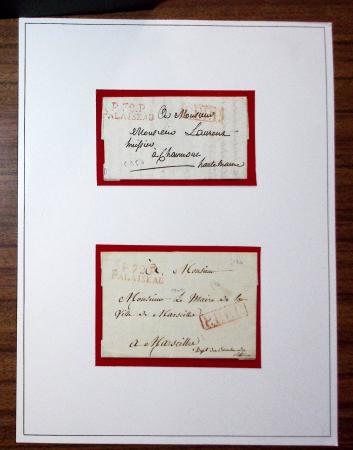 P.72.P
PALAISEAU
A Monsieur
Monsieur Laurent
huissier
à Chaumont
haute Marne
P.72.P
PALAISEAU
à Monsieur
Monsieur Le Maire de la
Ville de Marseille
P.P.P.P.
a Marseille